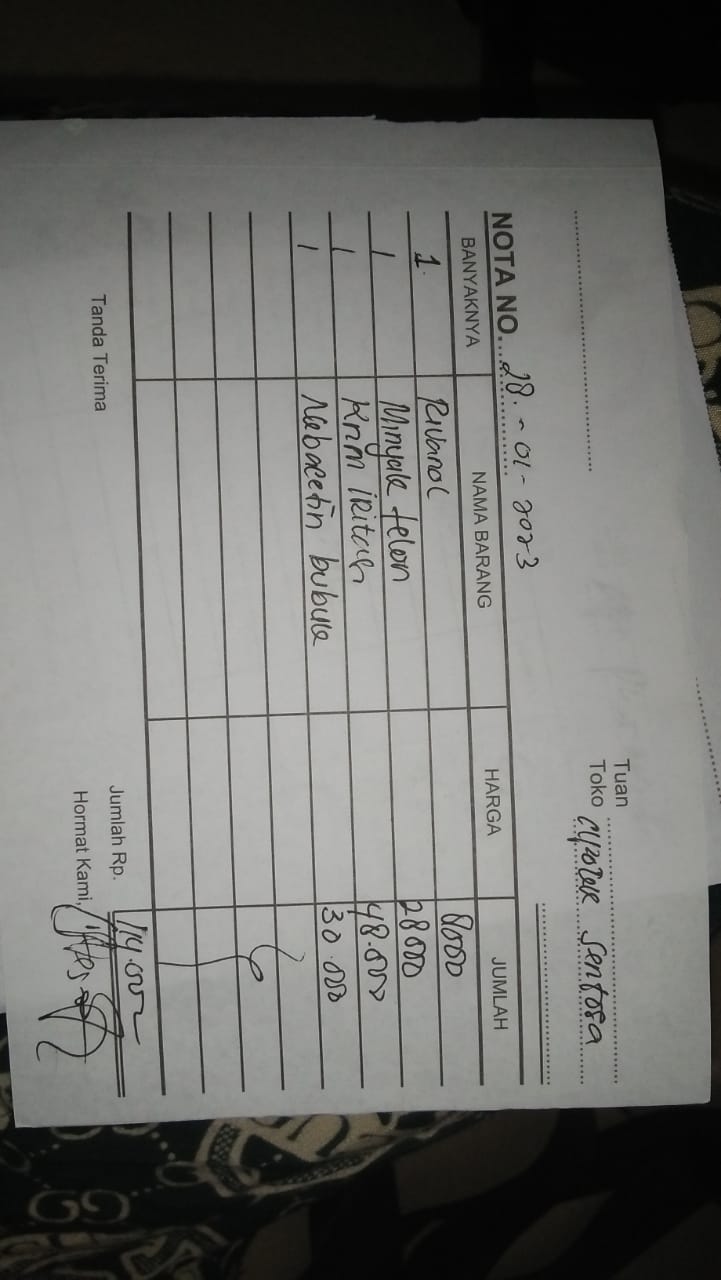 Tuan
Toko apotek Sentosa
NOTA NO. 28 - 01 - 2023
BANYAKNYA NAMA BARANG HARGA JUMLAH
1. Rivanol 8000
1 Minyak telon 28000
1 Krim iritasi 48.000
1 Nabacetin bubuk 30.000
Jumlah Rp. 114.000
Tanda Terima Hormat Kami,